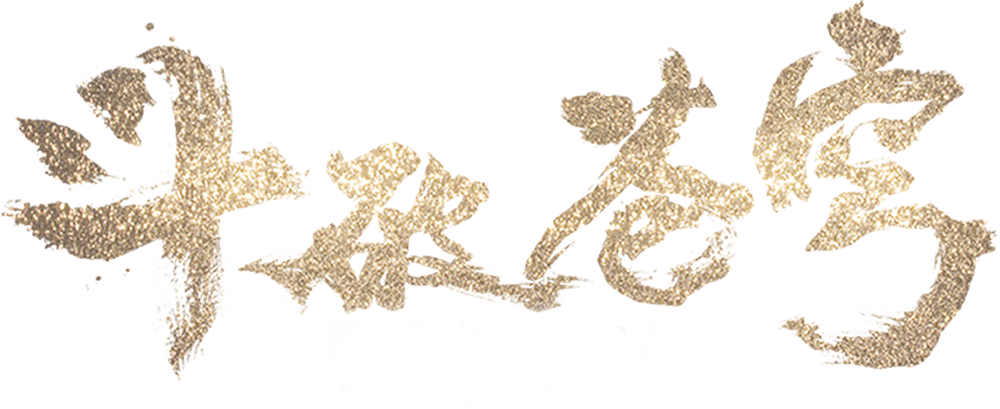 斗破苍穹